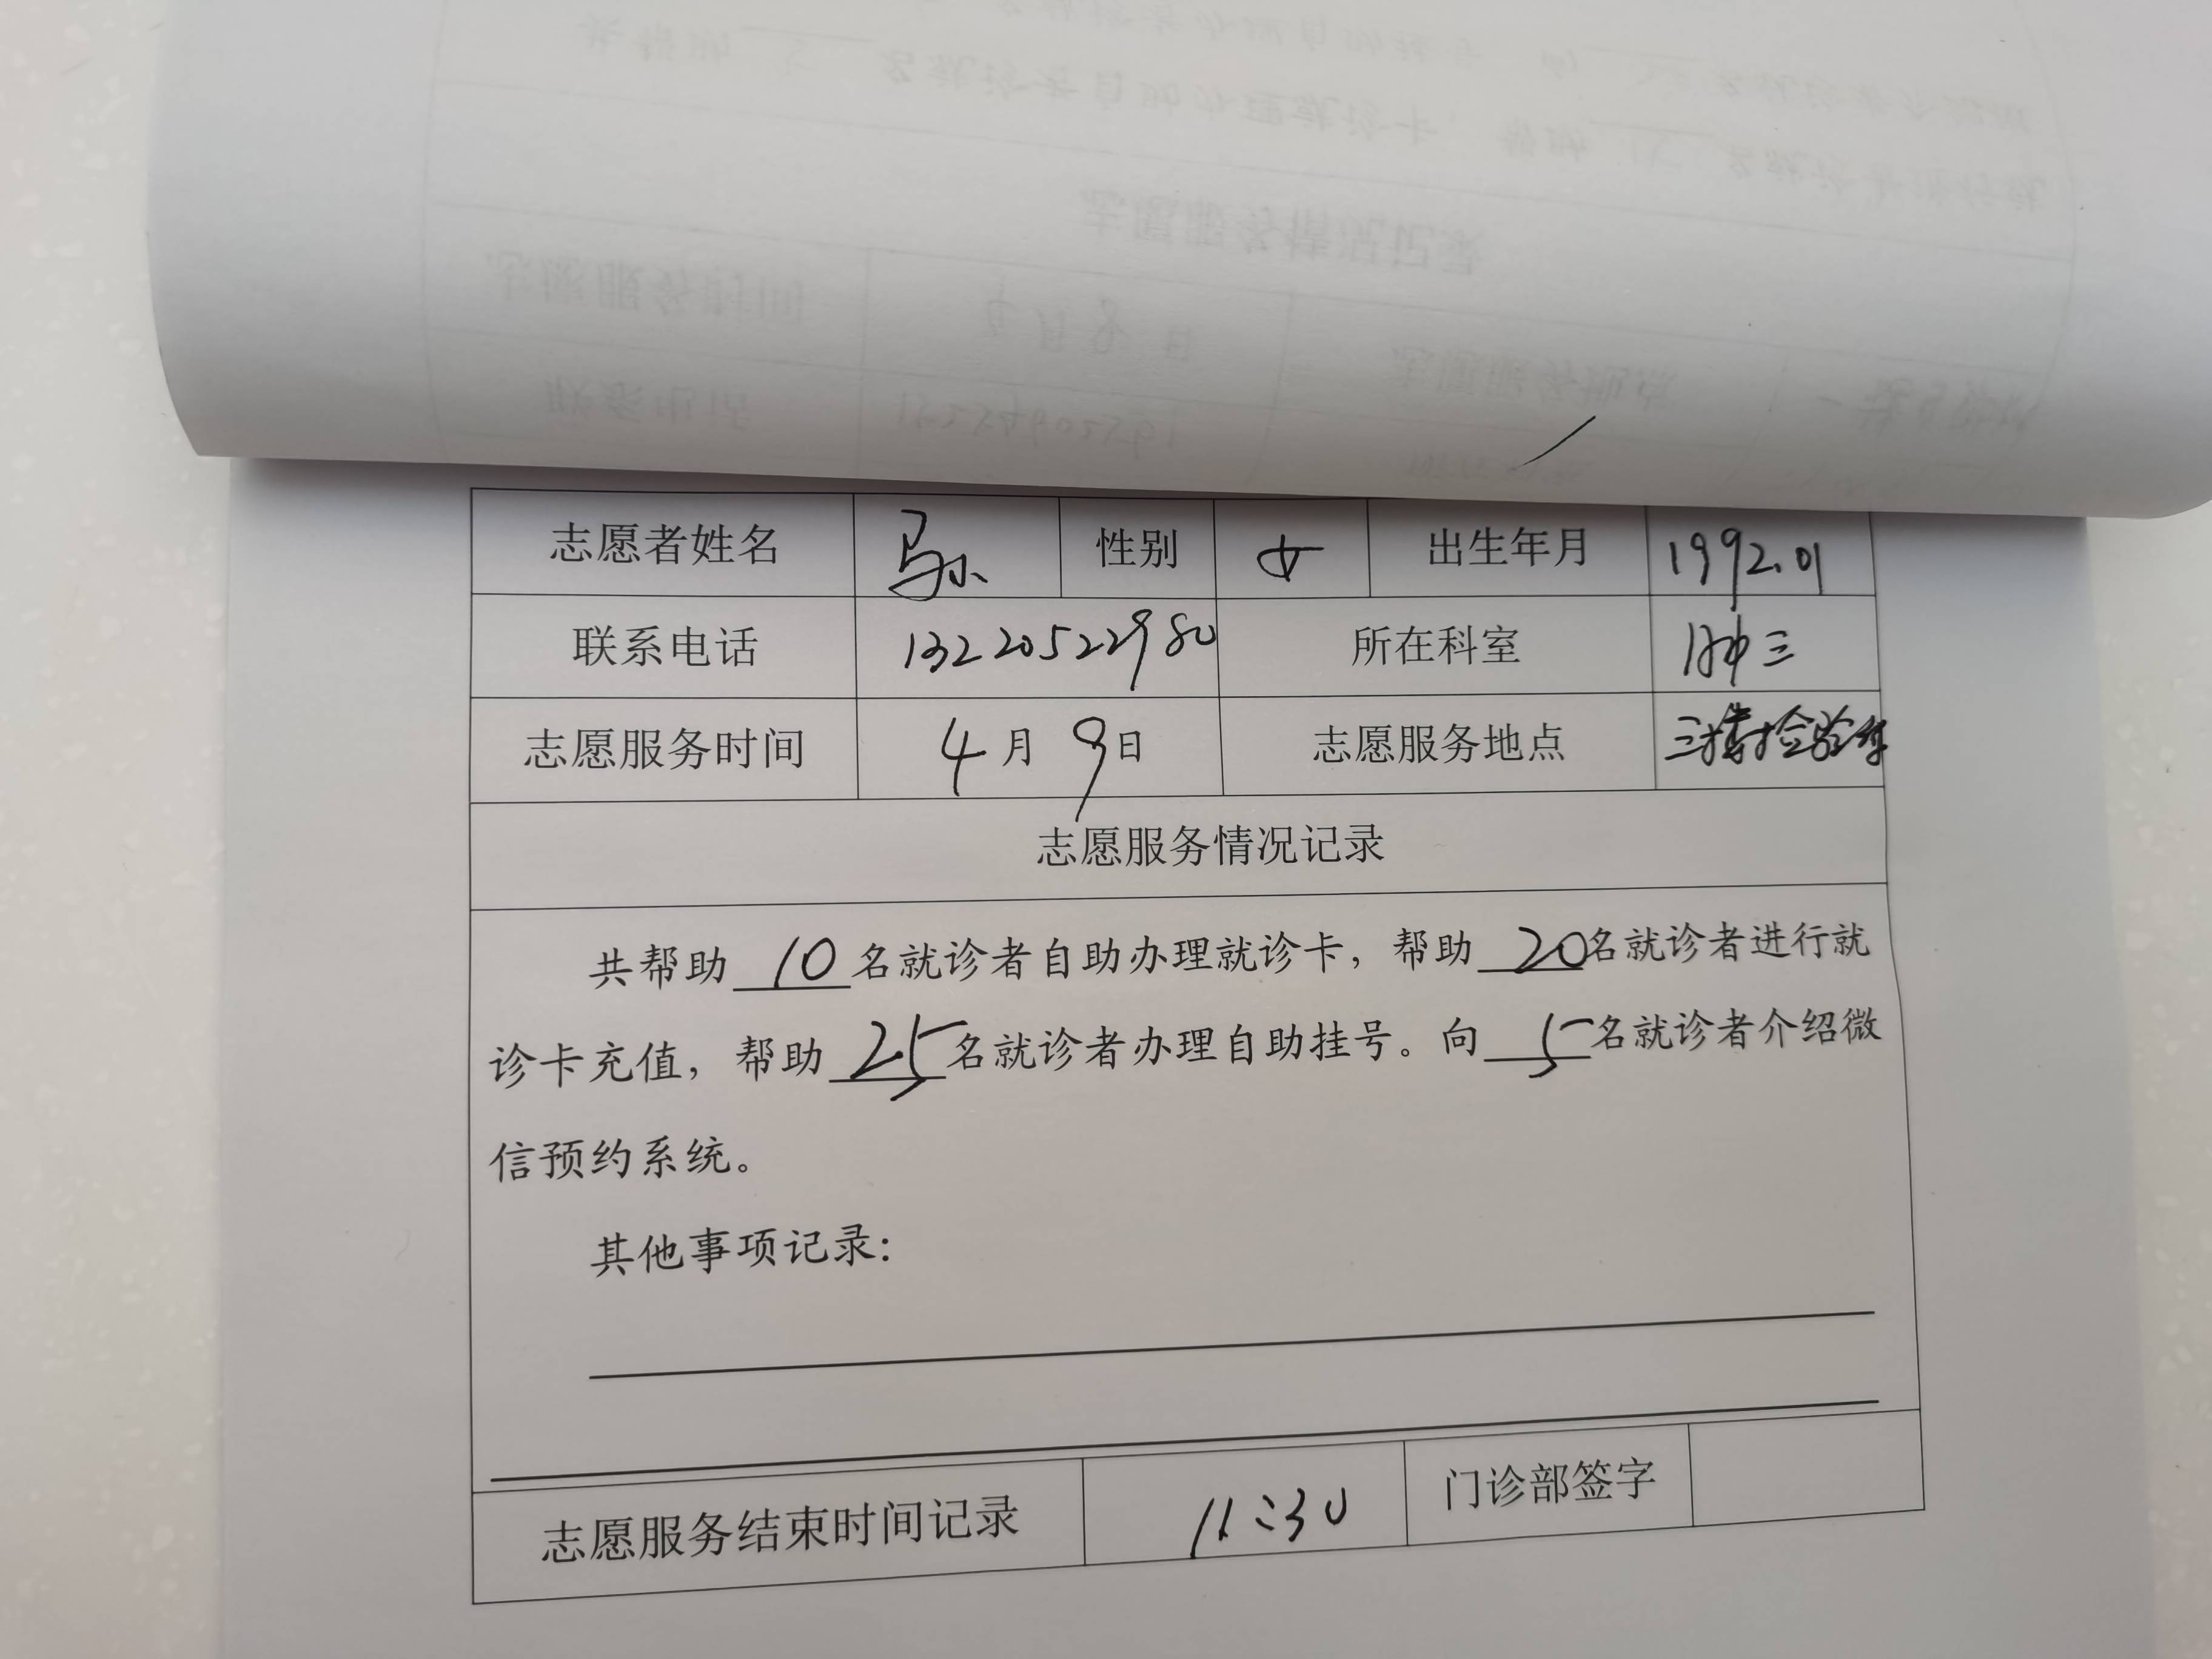 志愿者姓名 性别 女 出生年月 1992.01
联系电话 13220522980 所在科室 肿三
志愿服务时间 4月9日 志愿服务地点 三楼检验科
志愿服务情况记录
共帮助10名就诊者自助办理就诊卡，帮助20名就诊者进行就
诊卡充值，帮助25名就诊者办理自助挂号。向5名就诊者介绍微
信预约系统。
其他事项记录：
志愿服务结束时间记录 11:30 门诊部签字